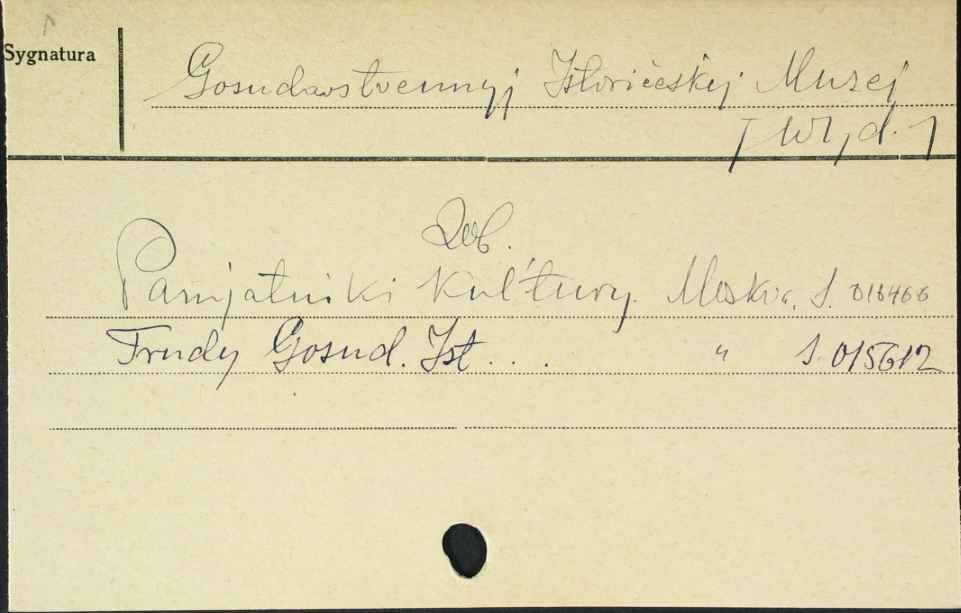 Sygnatura
Gosudarstvennyj Istoričeskij Muzej
[Wyd.]
Zob.
Pamjatniki Kul'tury. Moskva, S. 016466
Trudy Gosud. Ist. . . " S. 015612